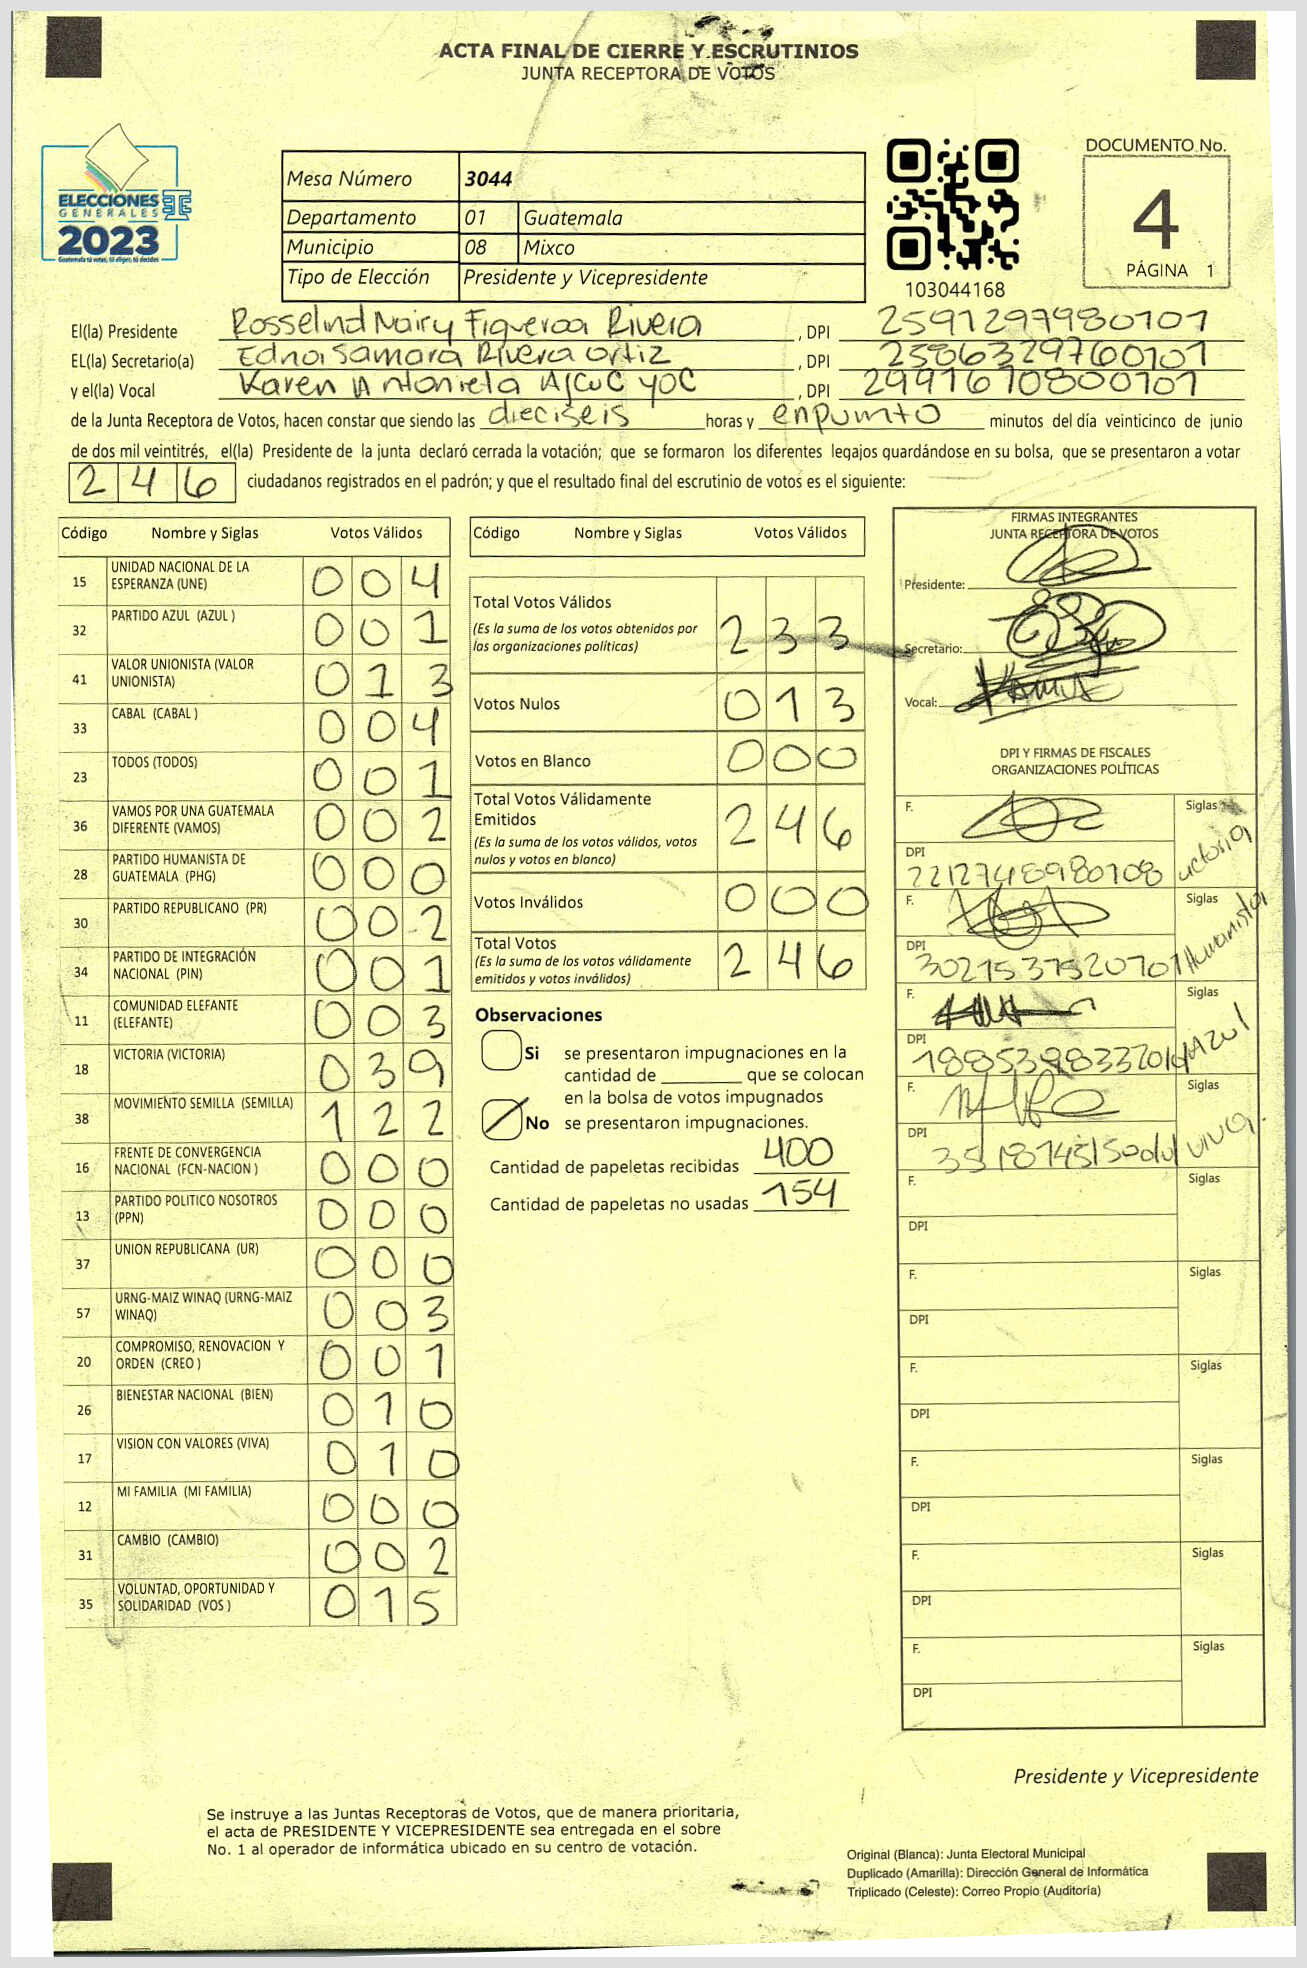 ACTA FINAL DE CIERRE Y ESCRUTINIOS
JUNTA RECEPTORA DE VOTOS
ELECCIONES
GENERALES
2023
Guatemala tú votas, tú eliges, tú decides
Mesa Número 3044
Departamento 01 Guatemala
Municipio 08 Mixco
Tipo de Elección Presidente y Vicepresidente
103044168
DOCUMENTO No.
4
PÁGINA 1
El(la) Presidente Rosselind Nairy Figueroa Rivera, DPI 2591297980101
EL(la) Secretario(a) Edna Samara Rivera Ortiz, DPI 2586329760101
y el(la) Vocal Karen Antonieta Ajcuc yoc, DPI 2991670800101
de la Junta Receptora de Votos, hacen constar que siendo las dieciseis horas y enpunto minutos del día veinticinco de junio
de dos mil veintitrés, el(la) Presidente de la junta declaró cerrada la votación; que se formaron los diferentes legajos guardándose en su bolsa, que se presentaron a votar
246 ciudadanos registrados en el padrón; y que el resultado final del escrutinio de votos es el siguiente:
Código Nombre y Siglas Votos Válidos
15 UNIDAD NACIONAL DE LA ESPERANZA (UNE) 004
32 PARTIDO AZUL (AZUL ) 001
41 VALOR UNIONISTA (VALOR UNIONISTA) 013
33 CABAL (CABAL ) 004
23 TODOS (TODOS) 001
36 VAMOS POR UNA GUATEMALA DIFERENTE (VAMOS) 002
28 PARTIDO HUMANISTA DE GUATEMALA (PHG) 000
30 PARTIDO REPUBLICANO (PR) 002
34 PARTIDO DE INTEGRACIÓN NACIONAL (PIN) 001
11 COMUNIDAD ELEFANTE (ELEFANTE) 003
18 VICTORIA (VICTORIA) 039
38 MOVIMIENTO SEMILLA (SEMILLA) 122
16 FRENTE DE CONVERGENCIA NACIONAL (FCN-NACION ) 000
13 PARTIDO POLITICO NOSOTROS (PPN) 000
37 UNION REPUBLICANA (UR) 000
57 URNG-MAIZ WINAQ (URNG-MAIZ WINAQ) 003
20 COMPROMISO, RENOVACION Y ORDEN (CREO ) 001
26 BIENESTAR NACIONAL (BIEN) 010
17 VISION CON VALORES (VIVA) 010
12 MI FAMILIA (MI FAMILIA) 000
31 CAMBIO (CAMBIO) 002
35 VOLUNTAD, OPORTUNIDAD Y SOLIDARIDAD (VOS ) 015
Código Nombre y Siglas Votos Válidos
Total Votos Válidos 233
(Es la suma de los votos obtenidos por
las organizaciones políticas)
Votos Nulos 013
Votos en Blanco 000
Total Votos Válidamente
Emitidos 246
(Es la suma de los votos válidos, votos
nulos y votos en blanco)
Votos Inválidos 000
Total Votos 246
(Es la suma de los votos válidamente
emitidos y votos inválidos)
Observaciones
Si se presentaron impugnaciones en la
cantidad de ________ que se colocan
en la bolsa de votos impugnados
No se presentaron impugnaciones.
Cantidad de papeletas recibidas 400
Cantidad de papeletas no usadas 154
FIRMAS INTEGRANTES
JUNTA RECEPTORA DE VOTOS
Presidente:
Secretario:
Vocal:
DPI Y FIRMAS DE FISCALES
ORGANIZACIONES POLÍTICAS
F. Siglas
DPI 2212748980108 victoria
F. Siglas
DPI 3021537520701 Humanista
F. Siglas
DPI Azul
F. Siglas
DPI VIVA
F. Siglas
DPI
F. Siglas
DPI
F. Siglas
DPI
F. Siglas
DPI
F. Siglas
DPI
F. Siglas
DPI
Presidente y Vicepresidente
Se instruye a las Juntas Receptoras de Votos, que de manera prioritaria,
el acta de PRESIDENTE Y VICEPRESIDENTE sea entregada en el sobre
No. 1 al operador de informática ubicado en su centro de votación.
Original (Blanca): Junta Electoral Municipal
Duplicado (Amarilla): Dirección General de Informática
Triplicado (Celeste): Correo Propio (Auditoría)